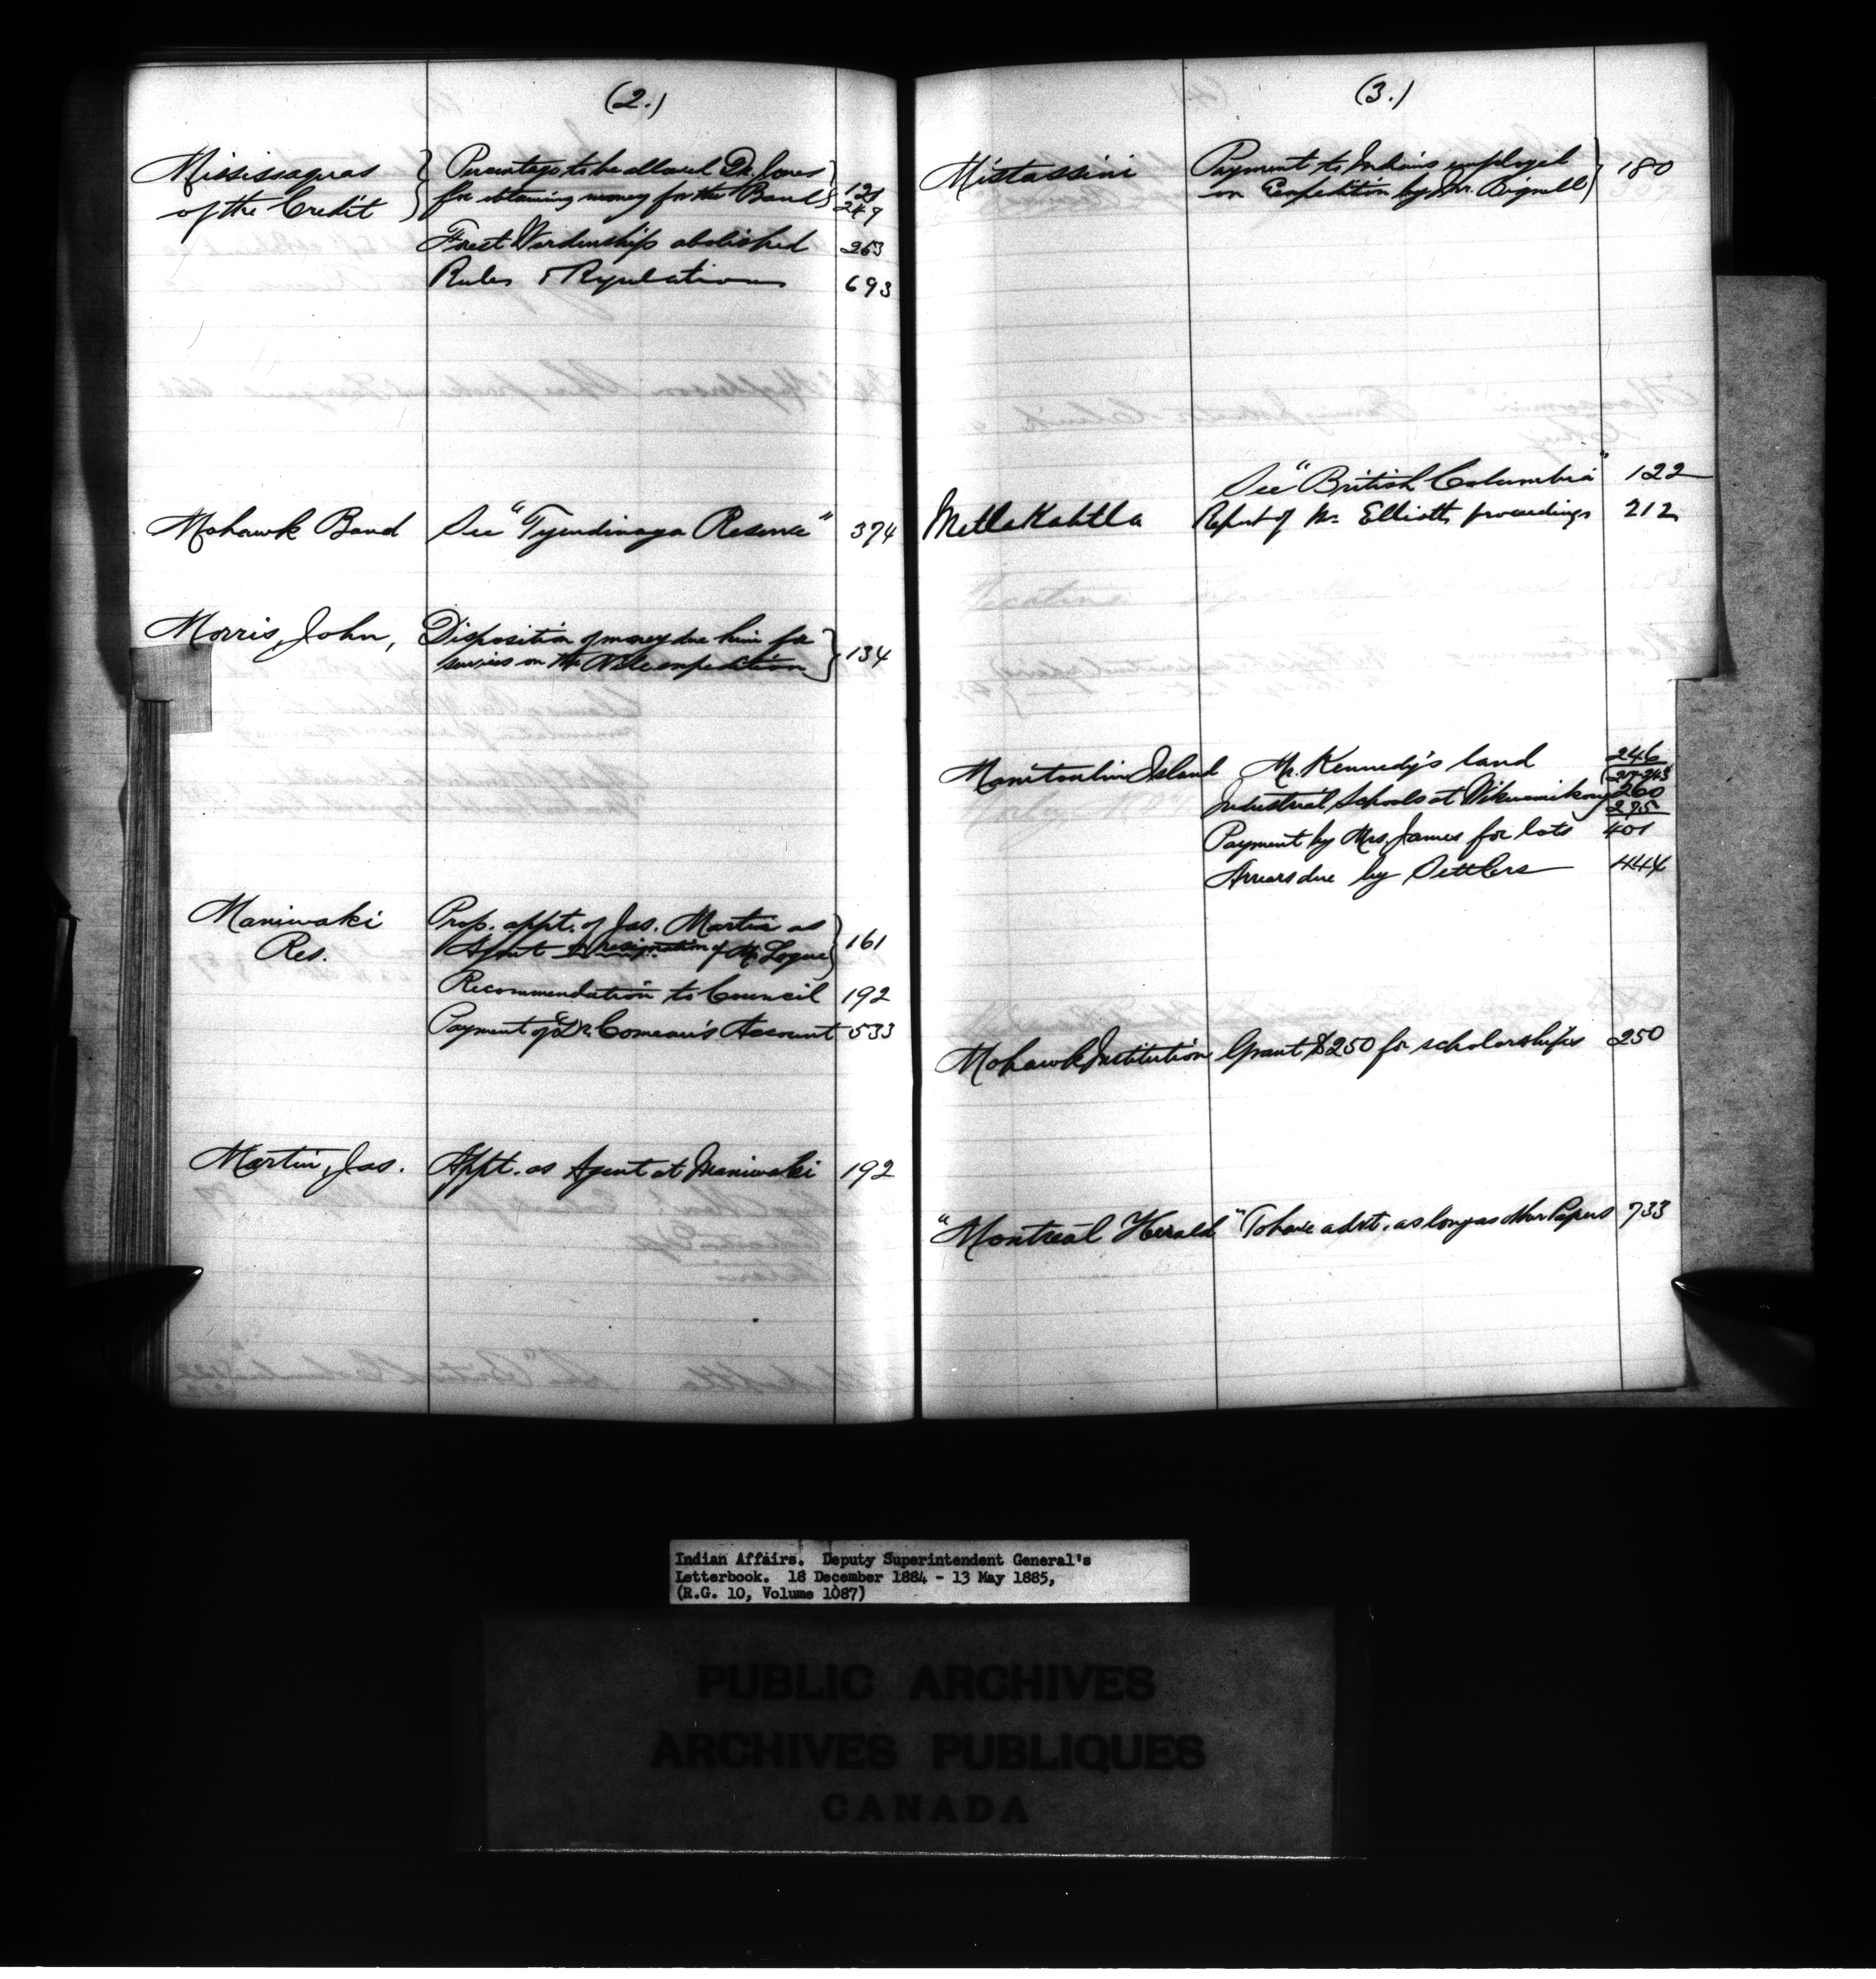 (2.)
Mississaguas
of the Credit
Percentage to be allowed Dr. Jones
for obtaining money for the Band
121
249
Forest Wardenship abolished 263
Rules & Regulations 693
Mohawk Band See "Tyendinaga Reserve" 374
Morris, John, Disposition of money due him for
services on the Nile expedition 134
Maniwaki
Res.
Prop. appt. of Jas. Martin as
Agent resignation of Mr Logue 161
Recommendation to Council 192
Payment of Dr. Comeau's Account 533
Martin, Jas. Appt. as Agent at Maniwaki 192
(3.)
Mistassini Payment to Indians employed
on Expedition by Mr. Bignell 180
See "British Columbia" 122
Metlakahtla Report of Mr Elliott's proceedings 212
Manitoulin Island Mr. Kennedy's land 246
Industrial Schools at Wikwemikong 260
295
Payment by Mrs. James for lots 401
Arrears due by Settlers 444
Mohawk Institution Grant $250 for scholarships 250
"Montreal Herald" To have advt. as long as other Papers 733
Indian Affairs. Deputy Superintendent General's
Letterbook. 18 December 1884 - 13 May 1885,
(R.G. 10, Volume 1087)
PUBLIC ARCHIVES
ARCHIVES PUBLIQUES
CANADA